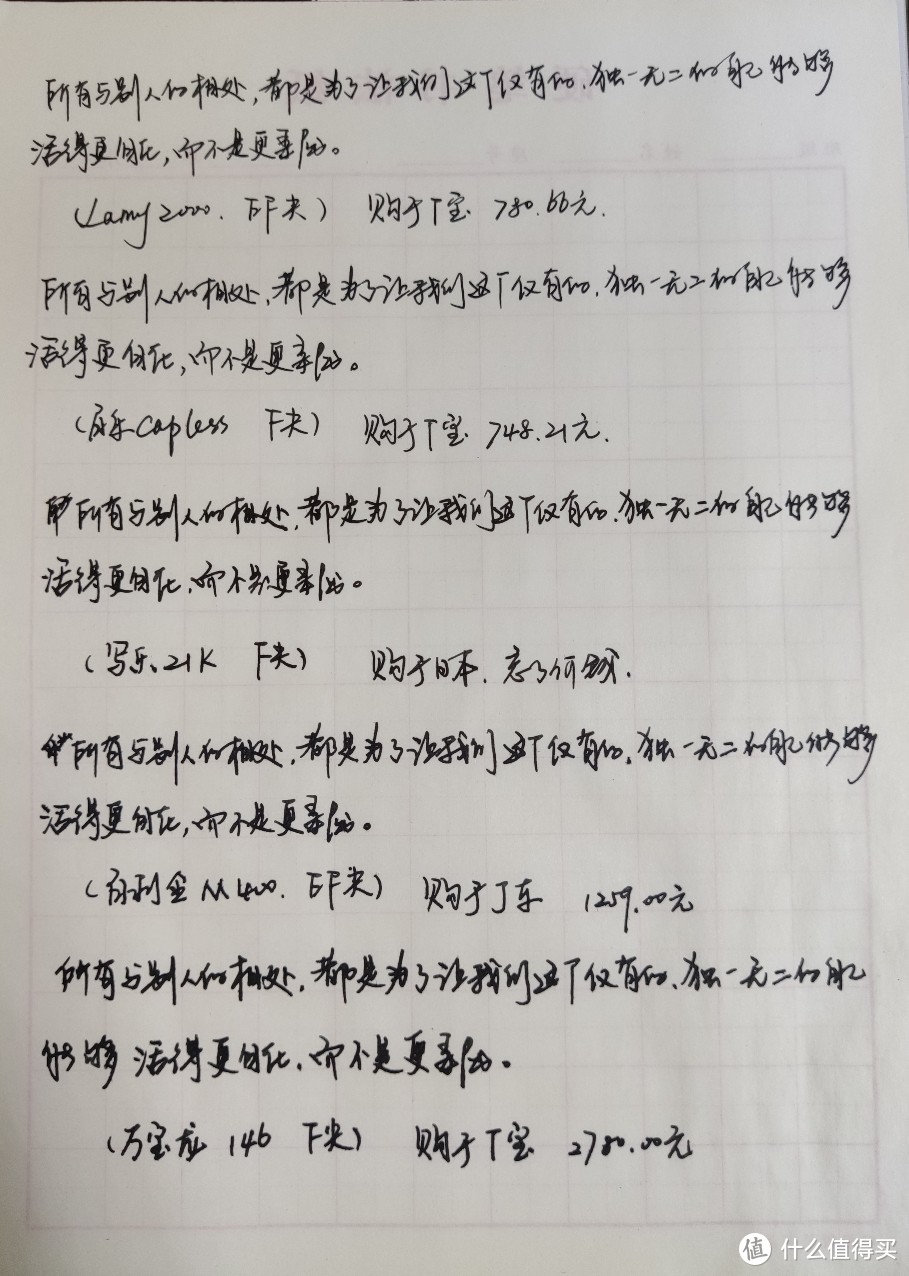 所有与别人的相处，都是为了让我们这个仅有的、独一无二的自己能够
活得更自在，而不是更委屈。
（Lamy 2000. EF尖） 购于T宝 780.66元.
所有与别人的相处，都是为了让我们这个仅有的、独一无二的自己能够
活得更自在，而不是更委屈。
（百乐Capless F尖） 购于T宝 748.21元.
所有与别人的相处，都是为了让我们这个仅有的、独一无二的自己能够
活得更自在，而不是更委屈。
（写乐、21K F尖） 购于日本，忘了价钱.
所有与别人的相处，都是为了让我们这个仅有的，独一无二的自己能够
活得更自在，而不是更委屈。
（百利金M400. EF尖） 购于J东 1259.00元
所有与别人的相处，都是为了让我们这个仅有的、独一无二的自己
能够活得更自在，而不是更委屈。
（万宝龙 146 F尖） 购于T宝 2780.00元
值 什么值得买